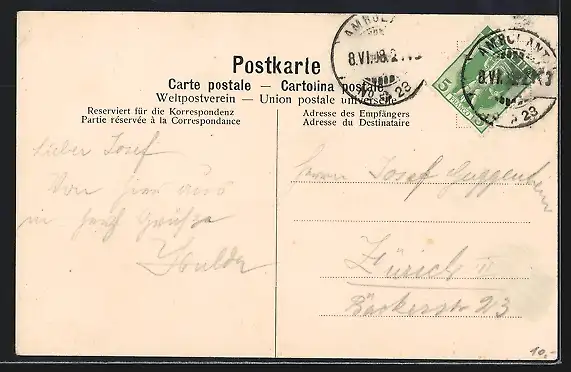 Postkarte
Carte postale – Cartolina postale
Weltpostverein – Union postale universelle
Reserviert für die Korrespondenz
Partie réservée à la Correspondance
Adresse des Empfängers
Adresse du Destinataire
AMBULANT
8.VI.08.2
No 23
AMBULANT
8.VI.
23
5
Lieber Josef
Von hier aus
Grüsse
Hulda
Herrn Josef Guggenheim
Zürich II
Bäckerstr 23
10,-